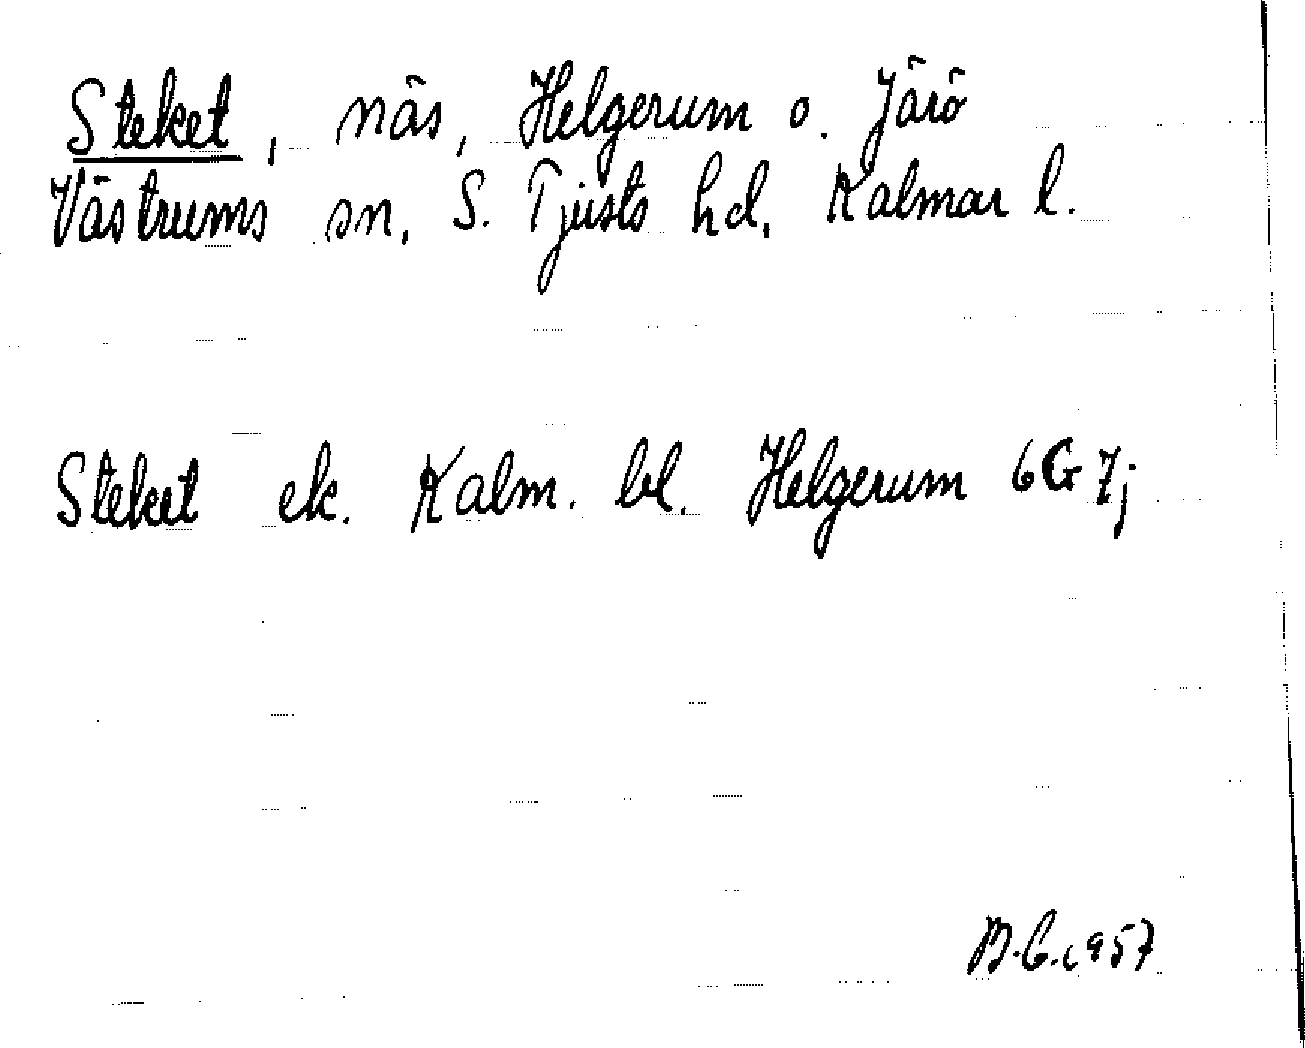 Steket, näs, Helgerum o. Järö
Västrums sn, S. Tjusts hd, Kalmar l.
Steket ek. Kalm. bl. Helgerum 6G 7j
B.C. 1957